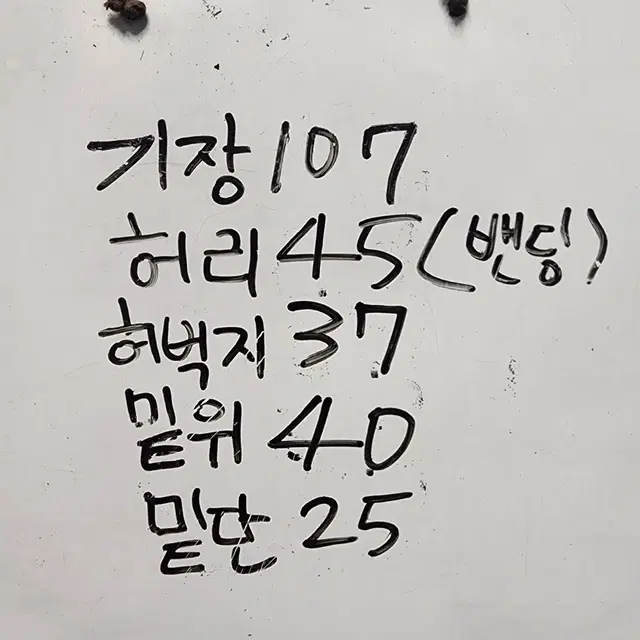 기장 107
허리 45 (밴딩)
허벅지 37
밑위 40
밑단 25